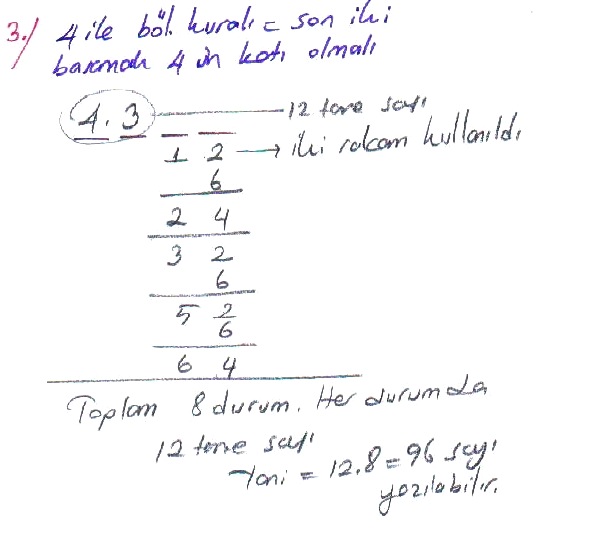 3./ 4 ile böl. kuralı = son iki
basamak 4 ün katı olmalı
4 . 3 12 tane sayı
1 2 → iki rakam kullanıldı
6
2 4
3 2
6
5 2
6
6 4
Toplam 8 durum. Her durumda
12 tane sayı
Yani = 12.8 = 96 sayı
yazılabilir.